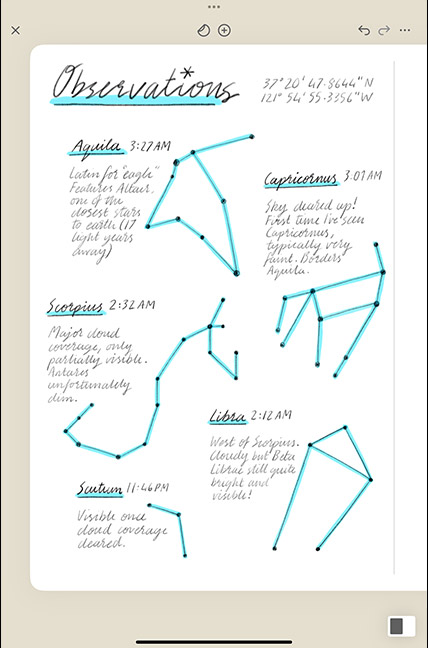 Observations*
37° 20' 47.8644" N
121° 54' 55.3356" W
Aquila 3:27 AM
Latin for "eagle"
Features Altair,
one of the
closest stars
to earth (17
light years
away)
Capricornus 3:01 AM
Sky cleared up!
First time I've seen
Capricornus,
typically very
faint. Borders
Aquila.
Scorpius 2:32 AM
Major cloud
coverage, only
partially visible.
Antares
unfortunately
dim.
Libra 2:12 AM
West of Scorpius.
Cloudy but Beta
Librae still quite
bright and
visible!
Scutum 11:46 PM
Visible once
cloud coverage
cleared.